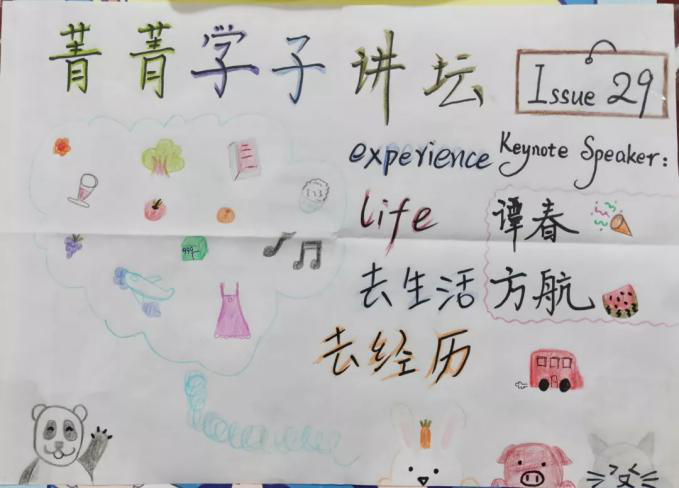 菁菁学子讲坛
Issue 29
experience
Keynote Speaker:
life
谭春
去生活
方航
去经历
999